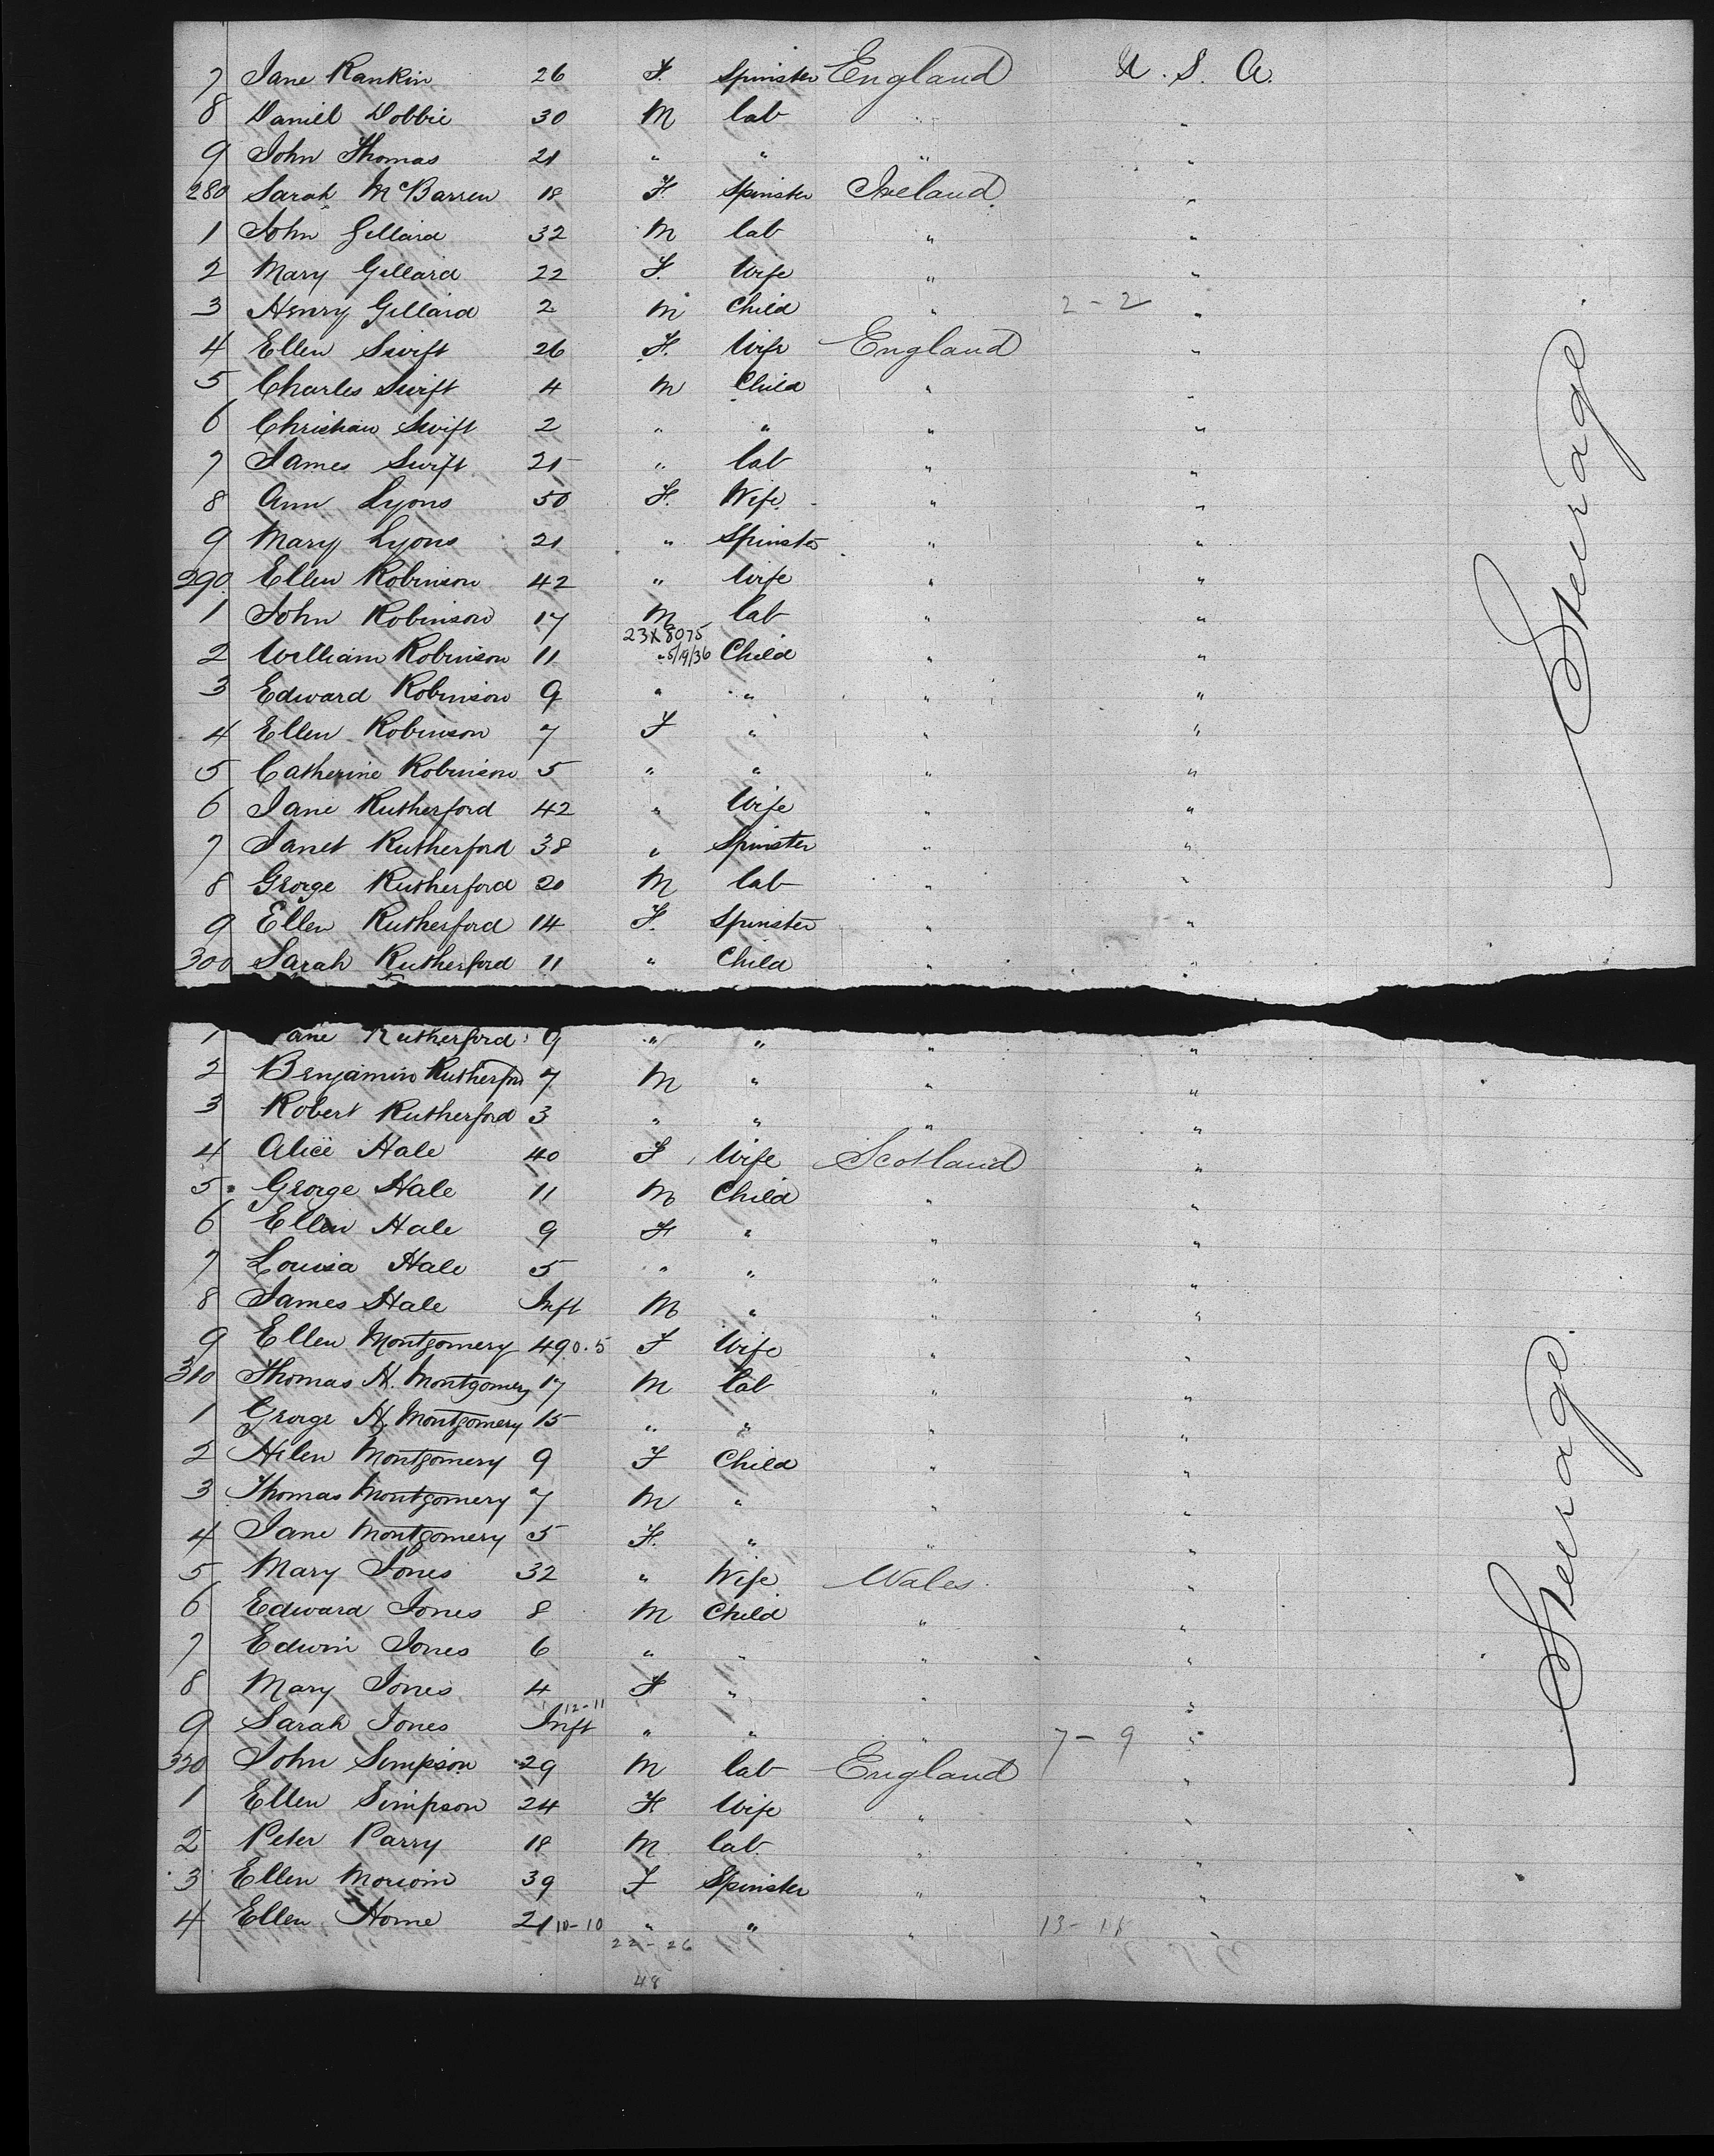 7 Jane Rankin 26 F. Spinster England U. S. A.
8 Daniel Dobbie 30 M lab " "
9 John Thomas 21 " " " "
280 Sarah McBarren 18 F Spinster Ireland "
1 John Gillard 32 M lab " "
2 Mary Gillard 22 F. Wife " "
3 Henry Gillard 2 M Child " 2-2 "
4 Ellen Swift 26 F. Wife England "
5 Charles Swift 4 M Child " "
6 Christian Swift 2 " " " "
7 James Swift 21 " lab " "
8 Ann Lyons 50 F. Wife " "
9 Mary Lyons 21 " Spinster " "
290 Ellen Robinson 42 " Wife " "
1 John Robinson 17 M lab " "
23X8075
2 William Robinson 11 " 5/19/36 Child " "
3 Edward Robinson 9 " " " "
4 Ellen Robinson 7 F " " "
5 Catherine Robinson 5 " " " "
6 Jane Rutherford 42 " Wife " "
7 Janet Rutherford 38 " Spinster " "
8 George Rutherford 20 M lab " "
9 Ellen Rutherford 14 F. Spinster " "
300 Sarah Rutherford 11 " Child " "
Steerage
1 ane Rutherford 9 " " " "
2 Benjamin Rutherford 7 M " " "
3 Robert Rutherford 3 " " " "
4 Alice Hale 40 F Wife Scotland "
5 George Hale 11 M Child " "
6 Ellen Hale 9 F " " "
7 Louisa Hale 5 " " " "
8 James Hale Inft M " " "
9 Ellen Montgomery 49 0.5 F Wife " "
310 Thomas H. Montgomery 17 M lab " "
1 George H. Montgomery 15 " " " "
2 Helen Montgomery 9 F Child " "
3 Thomas Montgomery 7 M " " "
4 Jane Montgomery 5 F. " " "
5 Mary Jones 32 " Wife Wales. "
6 Edward Jones 8 M Child " "
7 Edwin Jones 6 " " " "
8 Mary Jones 4 F " " "
12-11
9 Sarah Jones Inft " " " 7-9 "
320 John Simpson 29 M lab England "
1 Ellen Simpson 24 F Wife " "
2 Peter Parry 18 M lab. " "
3 Ellen 39 F Spinster " "
4 Ellen Horne 21 10-10 " " " "
22-26
48
Steerage.